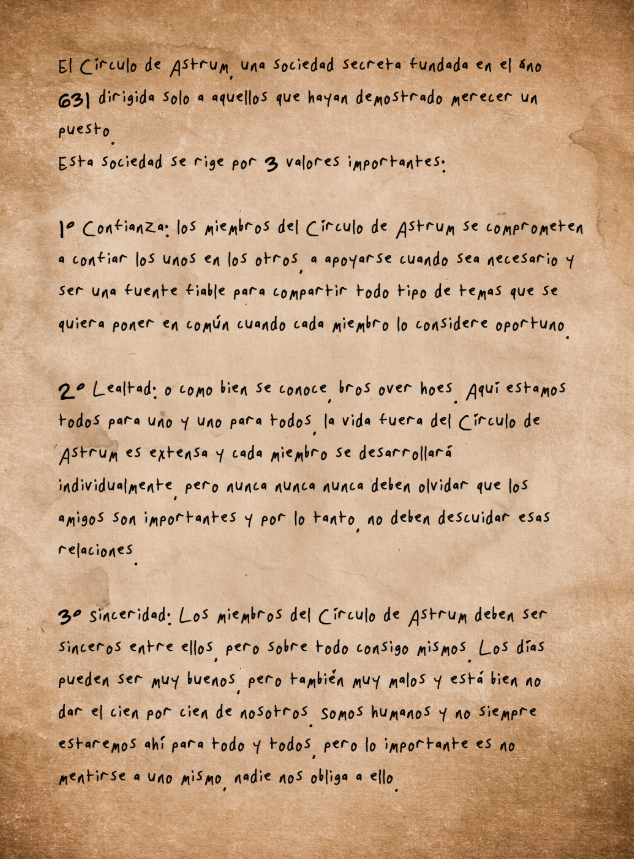 El Círculo de Astrum, una sociedad secreta fundada en el áno
631 dirigida solo a aquellos que hayan demostrado merecer un
puesto.
Esta sociedad se rige por 3 valores importantes:
1º Confianza: los miembros del Círculo de Astrum se comprometen
a confiar los unos en los otros, a apoyarse cuando sea necesario y
ser una fuente fiable para compartir todo tipo de temas que se
quiera poner en común cuando cada miembro lo considere oportuno.
2º Lealtad: o como bien se conoce, bros over hoes. Aquí estamos
todos para uno y uno para todos, la vida fuera del Círculo de
Astrum es extensa y cada miembro se desarrollará
individualmente, pero nunca nunca nunca deben olvidar que los
amigos son importantes y por lo tanto, no deben descuidar esas
relaciones.
3º Sinceridad: Los miembros del Círculo de Astrum deben ser
sinceros entre ellos, pero sobre todo consigo mismos. Los días
pueden ser muy buenos, pero también muy malos y está bien no
dar el cien por cien de nosotros. Somos humanos y no siempre
estaremos ahí para todo y todos, pero lo importante es no
mentirse a uno mismo, nadie nos obliga a ello.